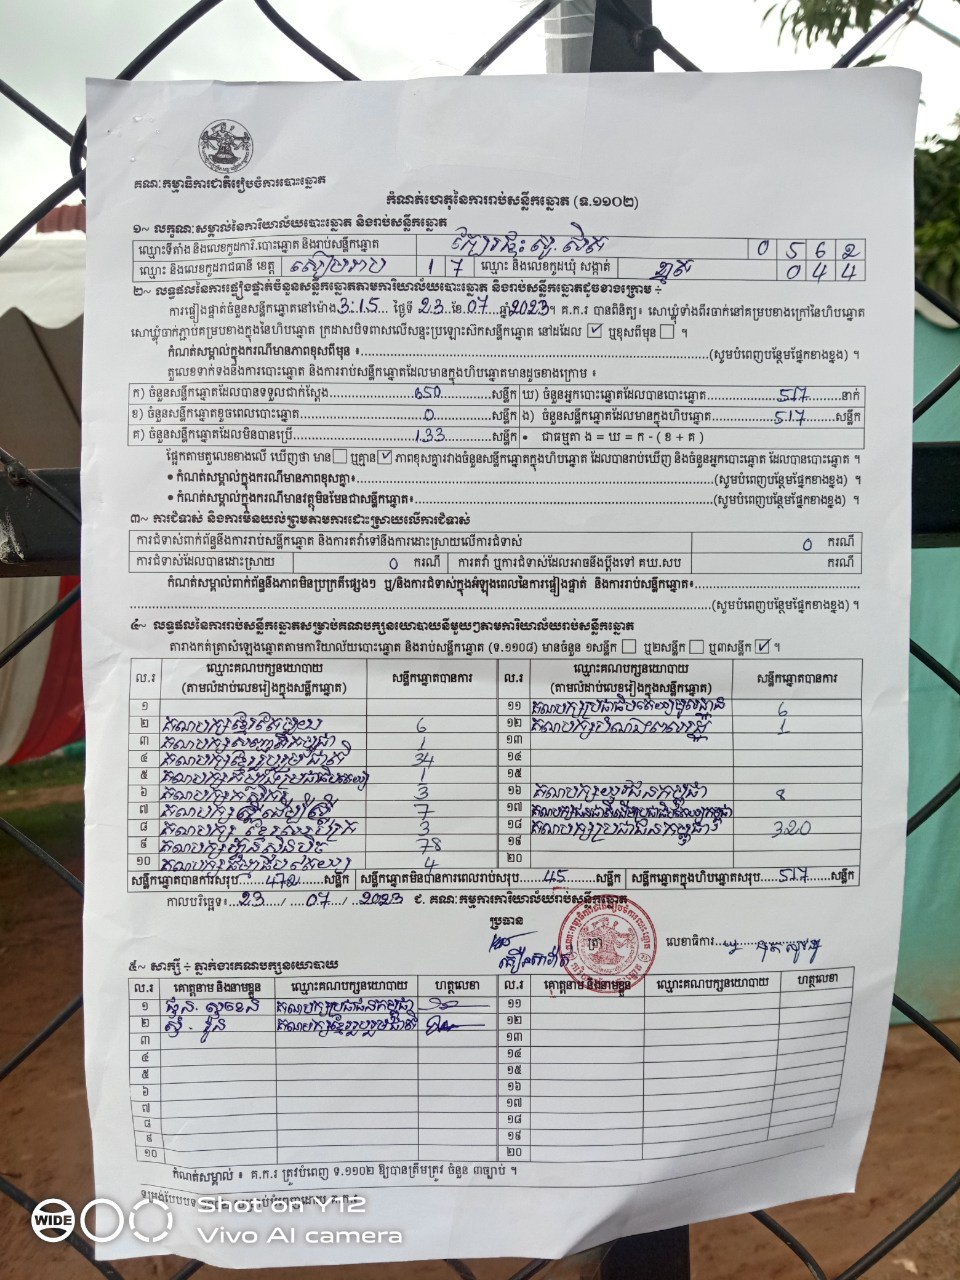 គណៈកម្មាធិការជាតិរៀបចំការបោះឆ្នោត
កំណត់ហេតុនៃការរាប់សន្លឹកឆ្នោត (ទ.១១០២)
១~ លក្ខណៈសម្គាល់នៃការិយាល័យបោះឆ្នោត និងរាប់សន្លឹកឆ្នោត
ឈ្មោះទីតាំង និងលេខកូដការិ.បោះឆ្នោត និងរាប់សន្លឹកឆ្នោត 0 5 6 2
ឈ្មោះ និងលេខកូដរាជធានី ខេត្ត សៀមរាប 1 7 ឈ្មោះ និងលេខកូដឃុំ សង្កាត់ 0 4 4
២~ លទ្ធផលនៃការផ្ទៀងផ្ទាត់ចំនួនសន្លឹកឆ្នោតតាមការិយាល័យបោះឆ្នោត និងរាប់សន្លឹកឆ្នោតដូចខាងក្រោម ÷
ការផ្ទៀងផ្ទាត់ចំនួនសន្លឹកឆ្នោតនៅម៉ោង 3:15 ថ្ងៃទី 23 ខែ 07 ឆ្នាំ 2023។ គ.ក.រ បានពិនិត្យ៖ សោឃ្លុំទាំងពីរចាក់នៅគម្របខាងក្រៅនៃហិបឆ្នោត
សោឃ្លុំចាក់ភ្ជាប់គម្របខាងក្នុងនៃហិបឆ្នោត ក្រដាសបិទពាសលើសន្ទះប្រឡោះសៀកសន្លឹកឆ្នោត នៅដដែល ☑ ឬខុសពីមុន ☐ ។
កំណត់សម្គាល់ក្នុងករណីមានភាពខុសពីមុន ៖ (សូមបំពេញបន្ថែមផ្នែកខាងខ្នង) ។
តួលេខទាក់ទងនឹងការបោះឆ្នោត និងការរាប់សន្លឹកឆ្នោតដែលមានក្នុងហិបឆ្នោតមានដូចខាងក្រោម ៖
ក) ចំនួនសន្លឹកឆ្នោតដែលបានទទួលជាក់ស្តែង 650 សន្លឹក ឃ) ចំនួនអ្នកបោះឆ្នោតដែលបានបោះឆ្នោត 517 នាក់
ខ) ចំនួនសន្លឹកឆ្នោតខូចពេលបោះឆ្នោត 0 សន្លឹក ង) ចំនួនសន្លឹកឆ្នោតដែលមានក្នុងហិបឆ្នោត 517 សន្លឹក
គ) ចំនួនសន្លឹកឆ្នោតដែលមិនបានប្រើ 133 សន្លឹក • ជាធម្មតា ង = ឃ = ក - ( ខ + គ )
ផ្អែកតាមតួលេខខាងលើ ឃើញថា មាន ☐ ឬគ្មាន ☑ ភាពខុសគ្នារវាងចំនួនសន្លឹកឆ្នោតក្នុងហិបឆ្នោត ដែលបានរាប់ឃើញ និងចំនួនអ្នកបោះឆ្នោត ដែលបានបោះឆ្នោត ។
• កំណត់សម្គាល់ក្នុងករណីមានភាពខុសគ្នា៖ (សូមបំពេញបន្ថែមផ្នែកខាងខ្នង) ។
• កំណត់សម្គាល់ក្នុងករណីមានវត្ថុមិនមែនជាសន្លឹកឆ្នោត៖ (សូមបំពេញបន្ថែមផ្នែកខាងខ្នង) ។
៣~ ការជំទាស់ និងការមិនយល់ព្រមតាមការដោះស្រាយលើការជំទាស់
ការជំទាស់ពាក់ព័ន្ធនឹងការរាប់សន្លឹកឆ្នោត និងការតវ៉ាទៅនឹងការដោះស្រាយលើការជំទាស់ 0 ករណី
ការជំទាស់ដែលបានដោះស្រាយ 0 ករណី ការតវ៉ា ឬការជំទាស់ដែលអាចនឹងប្តឹងទៅ គឃ.សប ករណី
កំណត់សម្គាល់ពាក់ព័ន្ធនឹងភាពមិនប្រក្រតីផ្សេងៗ ឬ/និងការជំទាស់ក្នុងអំឡុងពេលនៃការផ្ទៀងផ្ទាត់ និងការរាប់សន្លឹកឆ្នោត៖
(សូមបំពេញបន្ថែមផ្នែកខាងខ្នង) ។
៤~ លទ្ធផលនៃការរាប់សន្លឹកឆ្នោតសម្រាប់គណបក្សនយោបាយនីមួយៗតាមការិយាល័យរាប់សន្លឹកឆ្នោត
តារាងកត់ត្រាសំឡេងឆ្នោតតាមការិយាល័យបោះឆ្នោត និងរាប់សន្លឹកឆ្នោត (ទ.១១០៨) មានចំនួន ១សន្លឹក ☐ ឬ២សន្លឹក ☐ ឬ៣សន្លឹក ☑ ។
ល.រ ឈ្មោះគណបក្សនយោបាយ (តាមលំដាប់លេខរៀងក្នុងសន្លឹកឆ្នោត) សន្លឹកឆ្នោតបានការ ល.រ ឈ្មោះគណបក្សនយោបាយ (តាមលំដាប់លេខរៀងក្នុងសន្លឹកឆ្នោត) សន្លឹកឆ្នោតបានការ
១ ១១ គណបក្សប្រជាធិបតេយ្យមូលដ្ឋាន 6
២ គណបក្សខ្មែរតែមួយ 6 ១២ គណបក្ស 1
៣ គណបក្ស 1 ១៣
៤ គណបក្សខ្មែររួបរួមជាតិ 34 ១៤
៥ គណបក្ស 1 ១៥
៦ គណបក្សកសិករ 3 ១៦ គណបក្សយុវជនកម្ពុជា 8
៧ គណបក្សស្ត្រីដើម្បីស្ត្រី 7 ១៧ គណបក្ស
៨ គណបក្ស 3 ១៨ គណបក្សប្រជាជនកម្ពុជា 320
៩ គណបក្សហ្វ៊ុនស៊ិនប៉ិច 78 ១៩
១០ គណបក្ស 4 ២០
សន្លឹកឆ្នោតបានការសរុប 472 សន្លឹក សន្លឹកឆ្នោតមិនបានការពេលរាប់សរុប 45 សន្លឹក សន្លឹកឆ្នោតក្នុងហិបឆ្នោតសរុប 517 សន្លឹក
កាលបរិច្ឆេទ៖ 23 / 07 / 2023 ជ. គណៈកម្មការការិយាល័យរាប់សន្លឹកឆ្នោត
ប្រធាន (ត្រា) លេខាធិការ
៥~ សាក្សី ÷ ភ្នាក់ងារគណបក្សនយោបាយ
ល.រ គោត្តនាម និងនាមខ្លួន ឈ្មោះគណបក្សនយោបាយ ហត្ថលេខា ល.រ គោត្តនាម និងនាមខ្លួន ឈ្មោះគណបក្សនយោបាយ ហត្ថលេខា
១ គណបក្សប្រជាជនកម្ពុជា ១១
២ គណបក្សខ្មែររួបរួមជាតិ ១២
៣ ១៣
៤ ១៤
៥ ១៥
៦ ១៦
៧ ១៧
៨ ១៨
៩ ១៩
១០ ២០
កំណត់សម្គាល់ ៖ គ.ក.រ ត្រូវបំពេញ ទ.១១០២ ឱ្យបានត្រឹមត្រូវ ចំនួន ៣ច្បាប់ ។
WIDE
Shot on Y12
Vivo AI camera